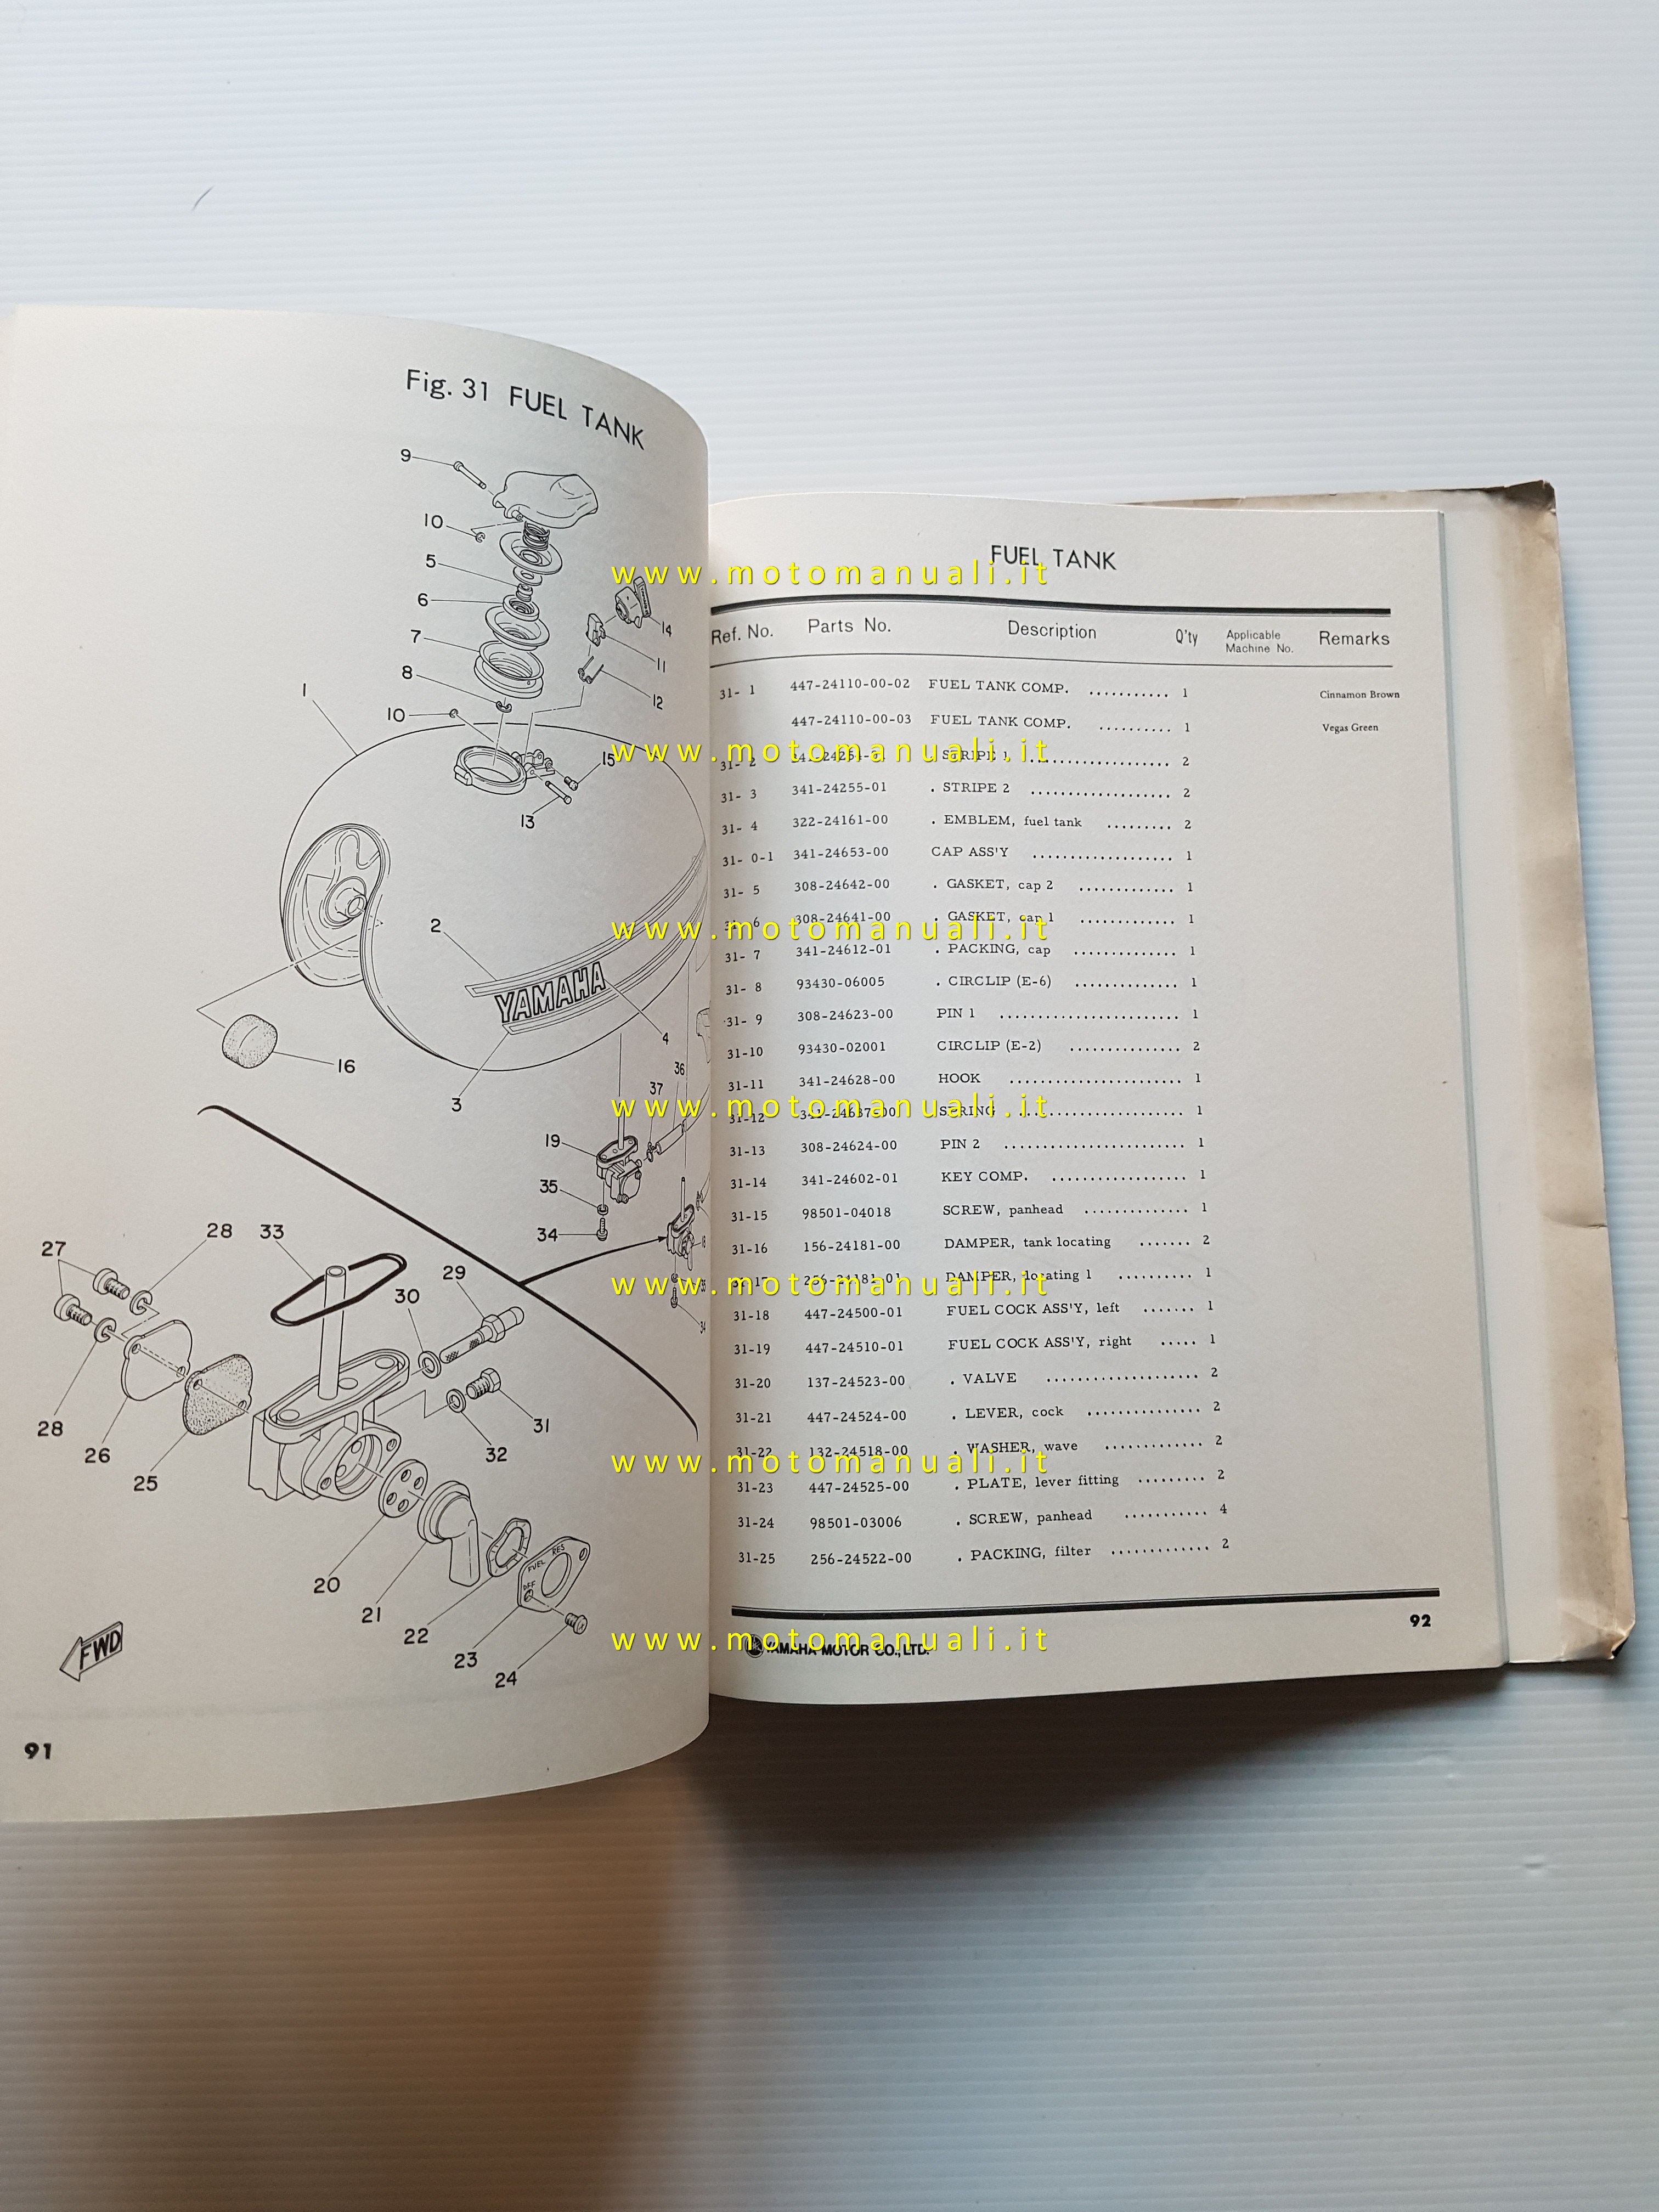 Fig. 31 FUEL TANK
9
10
5
6
7
8
10
1
14
11
12
15
13
2
YAMAHA
4
16
3
36
37
19
35
34
18
35
34
27
28
33
29
30
28
26
25
31
32
20
21
22
23
24
FUEL RES
OFF
FWD
91
FUEL TANK
Ref. No. Parts No. Description Q'ty Applicable Machine No. Remarks
31- 1 447-24110-00-02 FUEL TANK COMP. ........... 1 Cinnamon Brown
447-24110-00-03 FUEL TANK COMP. .......... 1 Vegas Green
31- 2 STRIPE 1 .................. 2
31- 3 341-24255-01 . STRIPE 2 ................... 2
31- 4 322-24161-00 . EMBLEM, fuel tank ......... 2
31- 0-1 341-24653-00 CAP ASS'Y ................... 1
31- 5 308-24642-00 . GASKET, cap 2 ............. 1
31- 6 308-24641-00 . GASKET, cap 1 ............. 1
31- 7 341-24612-01 . PACKING, cap .............. 1
31- 8 93430-06005 . CIRCLIP (E-6) .............. 1
31- 9 308-24623-00 PIN 1 ........................ 1
31-10 93430-02001 CIRCLIP (E-2) ............... 2
31-11 341-24628-00 HOOK ....................... 1
31-12 341-24637-00 SPRING ...................... 1
31-13 308-24624-00 PIN 2 ........................ 1
31-14 341-24602-01 KEY COMP. .................. 1
31-15 98501-04018 SCREW, panhead .............. 1
31-16 156-24181-00 DAMPER, tank locating ....... 2
31-17 256-24181-01 DAMPER, locating 1 .......... 1
31-18 447-24500-01 FUEL COCK ASS'Y, left ....... 1
31-19 447-24510-01 FUEL COCK ASS'Y, right ..... 1
31-20 137-24523-00 . VALVE .................... 2
31-21 447-24524-00 . LEVER, cock ............... 2
31-22 132-24518-00 . WASHER, wave ............. 2
31-23 447-24525-00 . PLATE, lever fitting ......... 2
31-24 98501-03006 . SCREW, panhead ........... 4
31-25 256-24522-00 . PACKING, filter ............. 2
92
YAMAHA MOTOR CO., LTD.
www.motomanuali.it
www.motomanuali.it
www.motomanuali.it
www.motomanuali.it
www.motomanuali.it
www.motomanuali.it
www.motomanuali.it